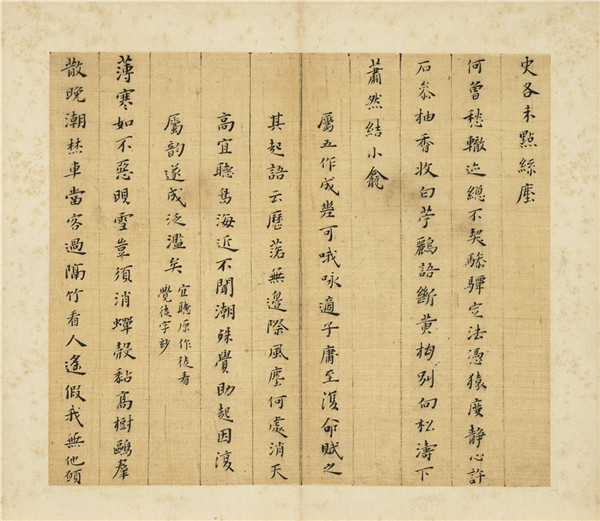 史各未點絲塵
何曾愁轍迹總不契驂驔定法憑猿度靜心許
石叅柚香收白苧鸝語斷黃柑別向松濤下
蕭然結小龕
屬五作成幾可哦咏適子庸至復命賦之
其起語云歷落無邊際風塵何處消天
高宜聽海近不聞潮殊助起因復
屬韵遂成泛濫矣
宜聽原作徒看
覺後字妙
薄寒如不惡明雪豈須消蟬殼黏高樹鷗羣
散晚潮焚車當客過隔竹看人遙假我無他願